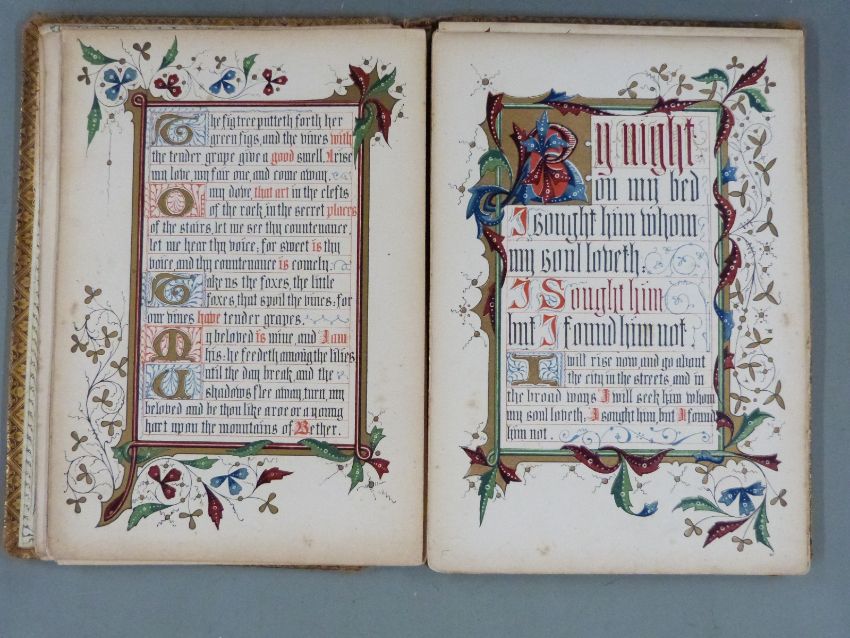 The fig tree putteth forth her
green figs, and the vines with
the tender grape give a good smell. Arise
my love, my fair one and come away.
O my dove, that art in the clefts
of the rock, in the secret places
of the stairs, let me see thy countenance,
let me hear thy voice, for sweet is thy
voice, and thy countenance is comely.
Take us the foxes, the little
foxes, that spoil the vines: for
our vines have tender grapes.
My beloved is mine, and I am
his: he feedeth among the lilies
until the day break, and the
shadows flee away, turn, my
beloved and be thou like a roe or a young
hart upon the mountains of Bether.
By night
on my bed
I sought him whom
my soul loveth.
I Sought him
but I found him not.
I will rise now, and go about
the city in the streets, and in
the broad ways I will seek him whom
my soul loveth. I sought him, but I found
him not.